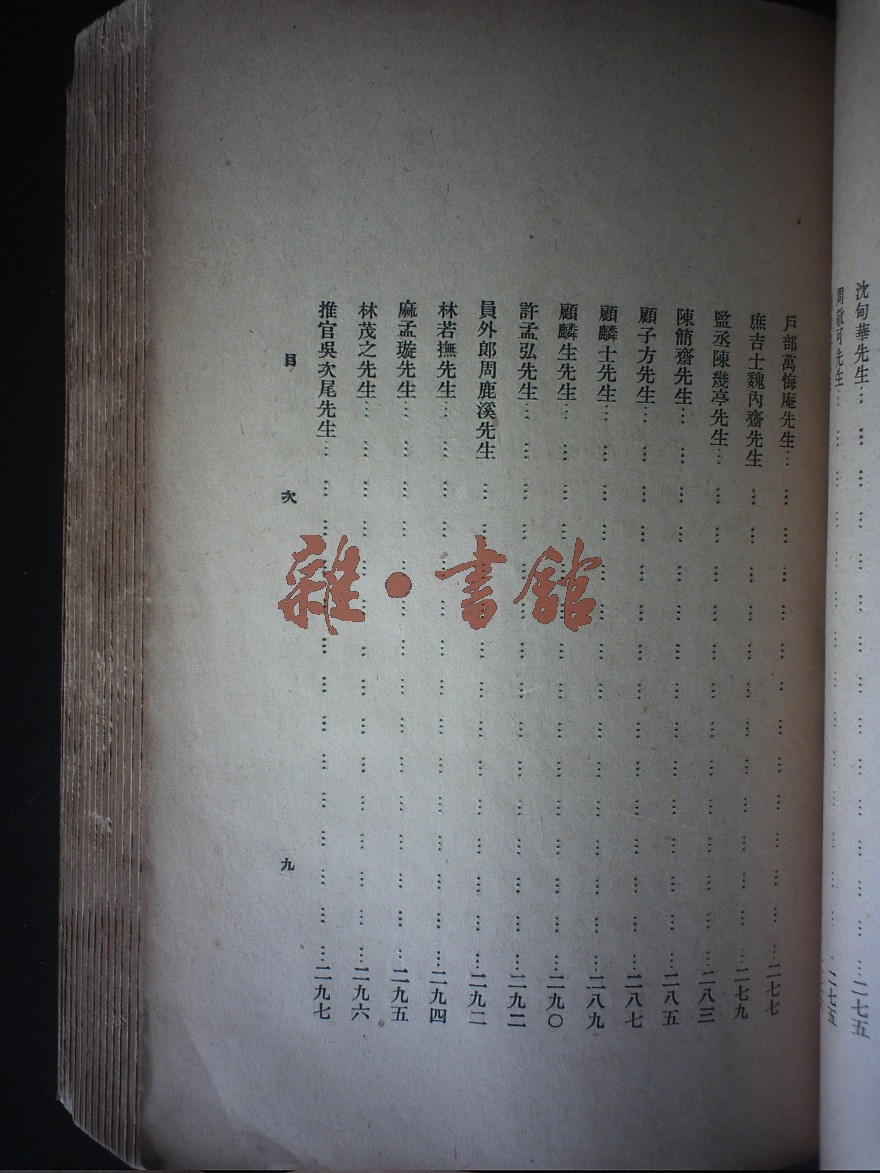 沈甸華先生…………………………………二七五
周敬可先生…………………………………二七五
戶部萬悔庵先生…………………………………二七七
庶吉士魏內齋先生…………………………………二七九
監丞陳幾亭先生…………………………………二八三
陳簡齋先生…………………………………二八五
顧子方先生…………………………………二八七
顧麟士先生…………………………………二八九
顧麟生先生…………………………………二九〇
許孟弘先生…………………………………二九二
員外郎周鹿溪先生…………………………………二九二
林若撫先生…………………………………二九四
麻孟璇先生…………………………………二九五
林茂之先生…………………………………二九六
推官吳次尾先生…………………………………二九七
目次
九
雜·書館